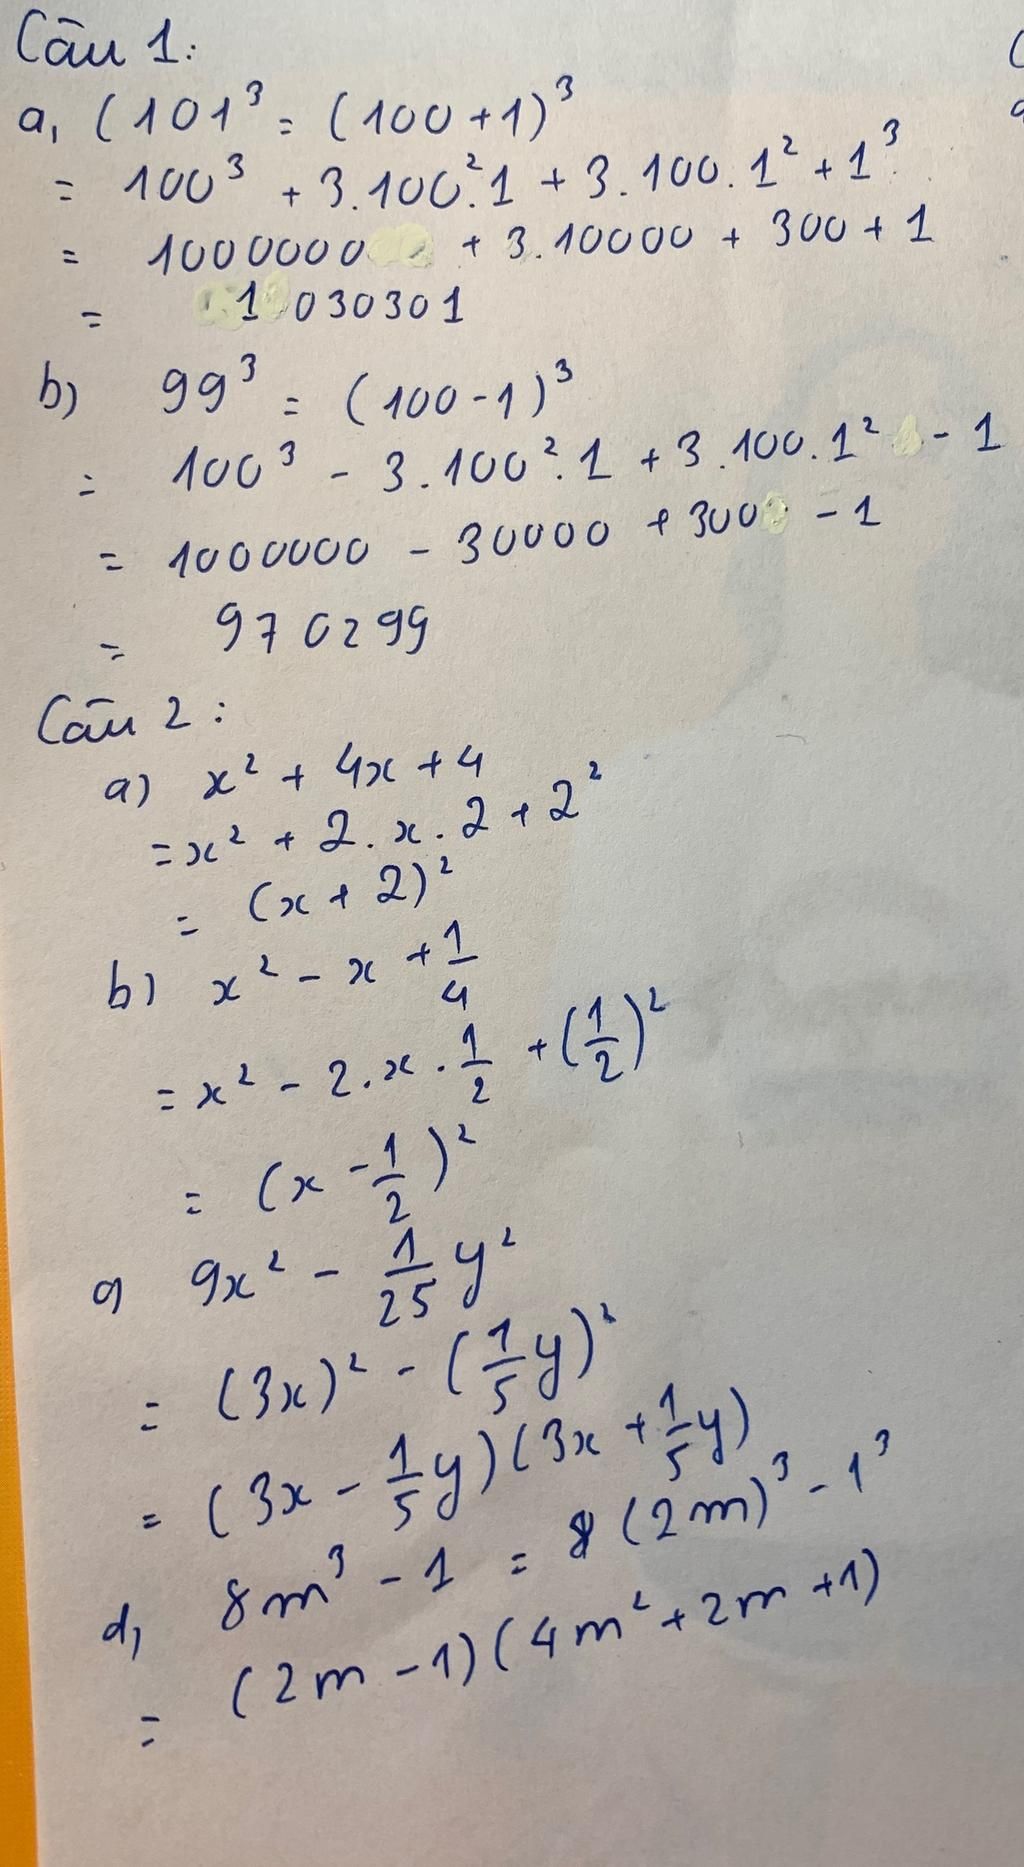 Câu 1:
a, (101³ = (100+1)³
= 100³ + 3.100².1 + 3.100.1² + 1³
= 1000000 + 3.10000 + 300 + 1
= 1030301
b) 99³ = (100-1)³
= 100³ - 3.100².1 + 3.100.1² - 1
= 1000000 - 30000 + 300 - 1
= 970299
Câu 2:
a) x² + 4x + 4
= x² + 2.x.2 + 2²
= (x + 2)²
b) x² - x + 1/4
= x² - 2.x.1/2 + (1/2)²
= (x - 1/2)²
c) 9x² - 1/25 y²
= (3x)² - (1/5 y)²
= (3x - 1/5 y)(3x + 1/5 y)
d, 8m³ - 1 = (2m)³ - 1³
= (2m - 1)(4m² + 2m + 1)